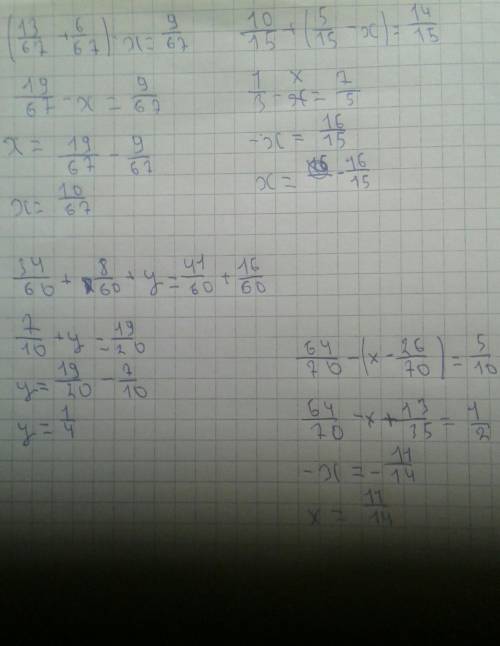 (13/67 + 6/67) - x = 9/67
19/67 - x = 9/67
x = 19/67 - 9/67
x = 10/67
10/15 + (5/15 - x) = 14/15
1/3 - x = 7/5
-x = 16/15
x = -16/15
34/60 + 8/60 + y = 41/60 + 16/60
7/10 + y = 19/20
y = 19/20 - 7/10
y = 1/4
64/70 - (x - 26/70) = 5/10
64/70 - x + 13/35 = 1/2
-x = -11/14
x = 11/14